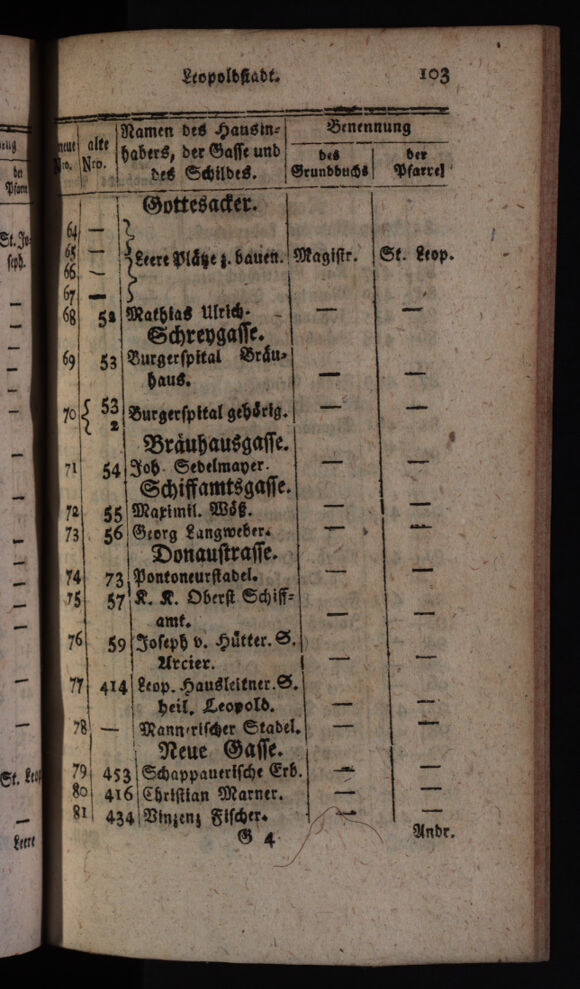 Leopoldstadt. 103
neue Nro. | alte Nro. | Namen des Hausin-habers, der Gasse und des Schildes. | Benennung
des Grundbuchs | der Pfarrei
Gottesacker.
64 —
65 — Leere Plätze z. bauen. Magistr. St. Leop.
66 —
67 —
68 52 Mathias Ulrich. — —
Schreygasse.
69 53 Burgerspital Bräu-
haus. — —
70 { 53 Burgerspital gehörig. — —
2
Bräuhausgasse.
71 54 Joh. Sedelmayer. — —
Schiffamtsgasse.
72 55 Maximil. Wöß. — —
73 56 Georg Langweber. — —
Donaustrasse.
74 73 Pontoneurstadel. — —
75 57 K. K. Oberst Schiff-
amt. — —
76 59 Joseph v. Hütter. S.
Arcier. — —
77 414 Leop. Hausleitner. S.
heil. Leopold. — —
78 — Mannerischer Stadel. — —
Neue Gasse.
79 453 Schappauerische Erb. — —
80 416 Christian Marner. — —
81 434 Vinzenz Fischer. — —
G 4 Andr.
der
Pfarrei
St. Jo-
seph.
St. Leop
Leere